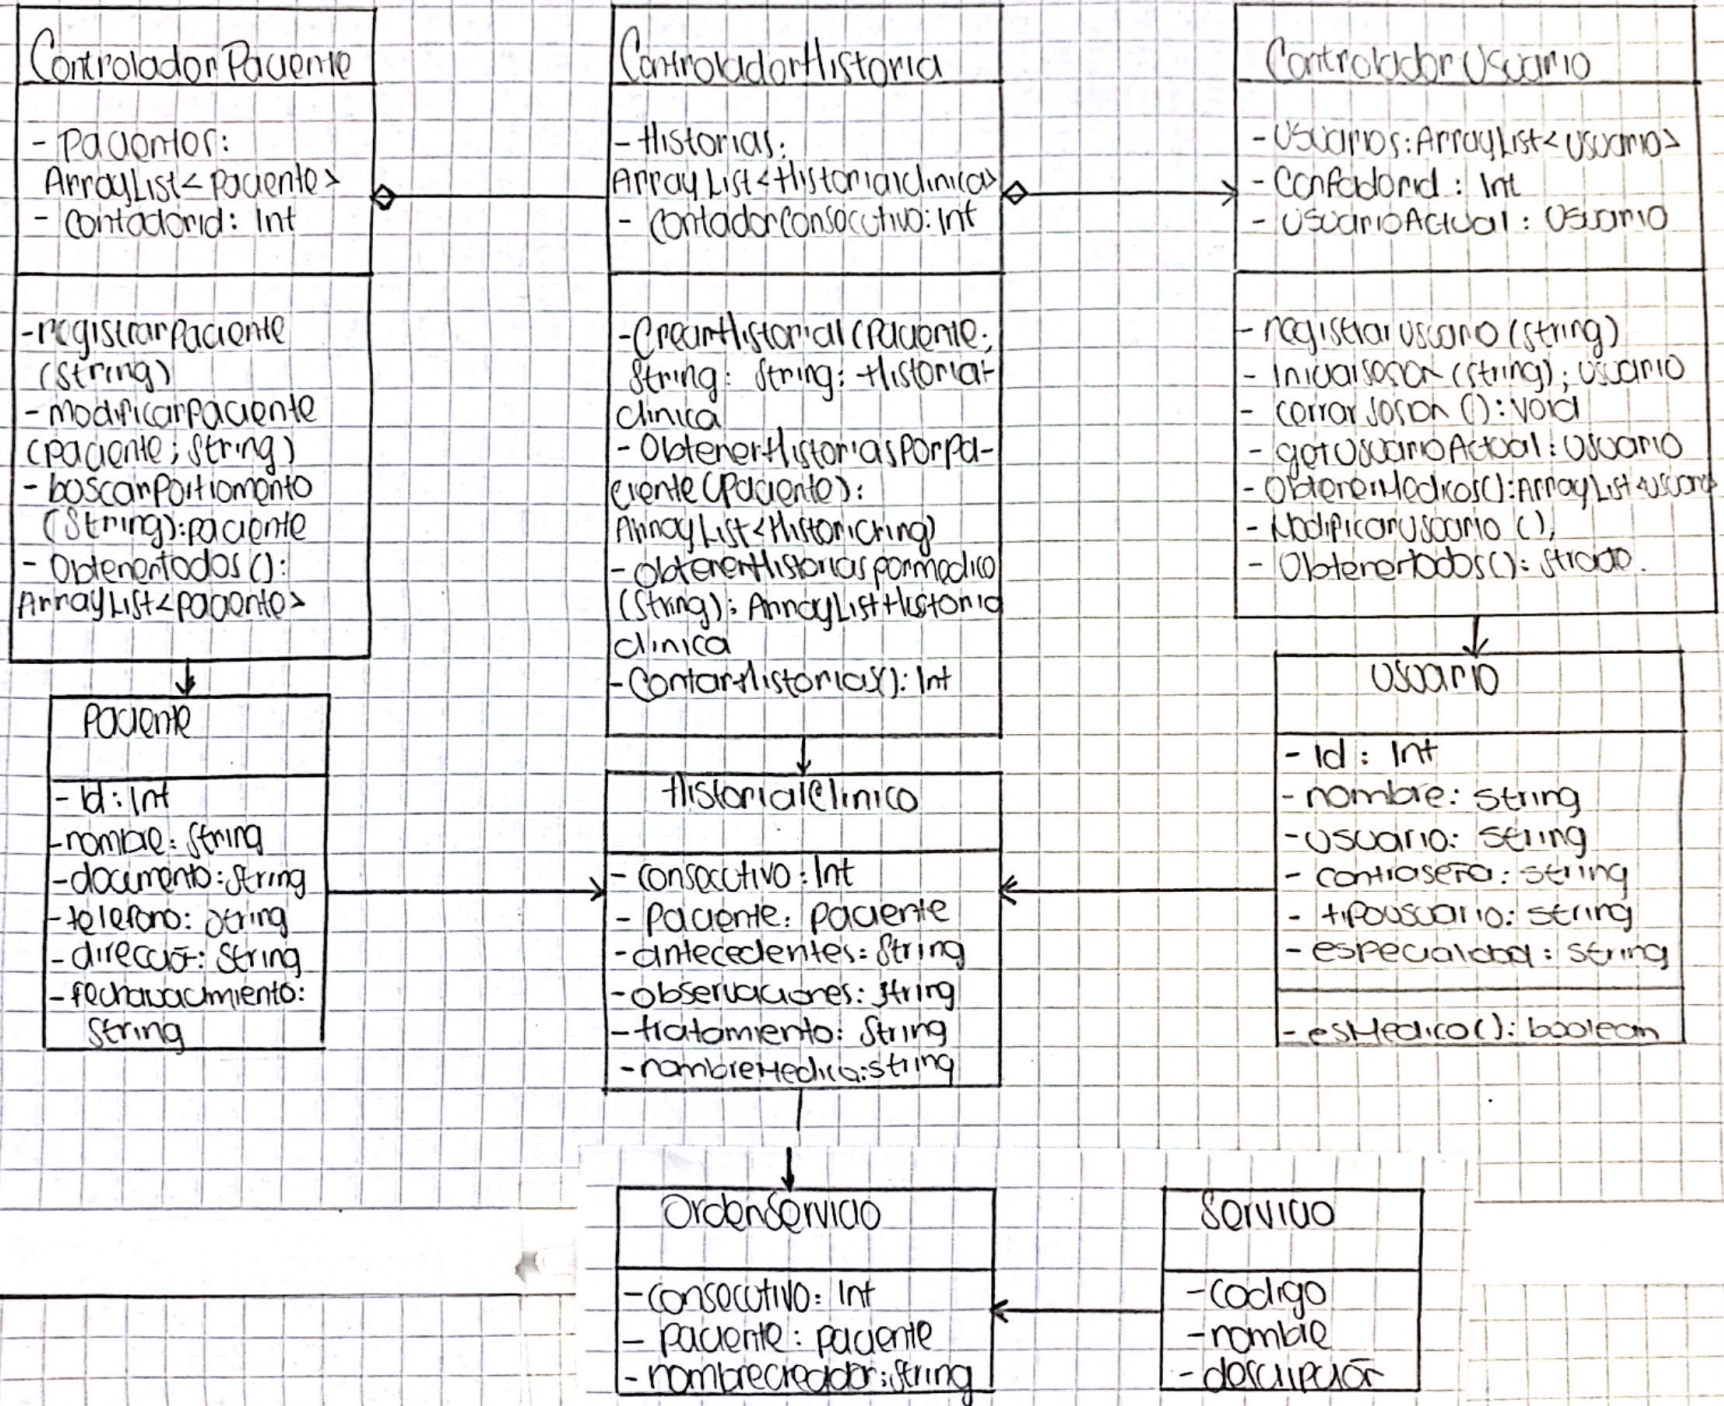 ControladorPaciente
- pacientes:
ArrayList<paciente>
- contadorid: Int
-registrarpaciente
(string)
- modificarpaciente
(paciente; string)
- buscarpor
(String):paciente
- Obtenertodos():
ArrayList<paciente>
ControladorHistoria
- Historias:
ArrayList<Historialclinica>
- contadorconsecutivo: Int
-CrearHistorial(paciente;
String: String: Historial
clinica
- ObtenerHistoriasporpa-
ciente(paciente):
ArrayList
-obtenerHistoriaspormedico
(String): ArrayListHistoria
clinica
-ContarHistorias(): Int
Controlador Usuario
- Usuarios: ArrayList<usuario>
- Contadorid : Int
- UsuarioActual : Usuario
- registrarusuario (string)
- iniciarsesion (string); usuario
- cerrarsesion (): void
- getUsuarioActual: Usuario
- ObtenerMedicos():ArrayList<usuario>
- Modificarusuario (),
- Obtenertodos():
Paciente
- Id: Int
-nombre: String
-documento: String
-telefono: String
-dirección: String
-fechanacimiento:
String
HistorialClinico
- consecutivo: Int
- paciente: paciente
-antecedentes: String
-observaciones: String
-tratamiento: String
-nombreMedico:string
Usuario
- Id : Int
- nombre: string
-usuario: string
- contraseña: string
- tipousuario: string
- especialidad : string
- esMedico(): boolean
OrdenServicio
-consecutivo: Int
- paciente: paciente
-nombrecreador:String
Servicio
-codigo
-nombre
-descripción